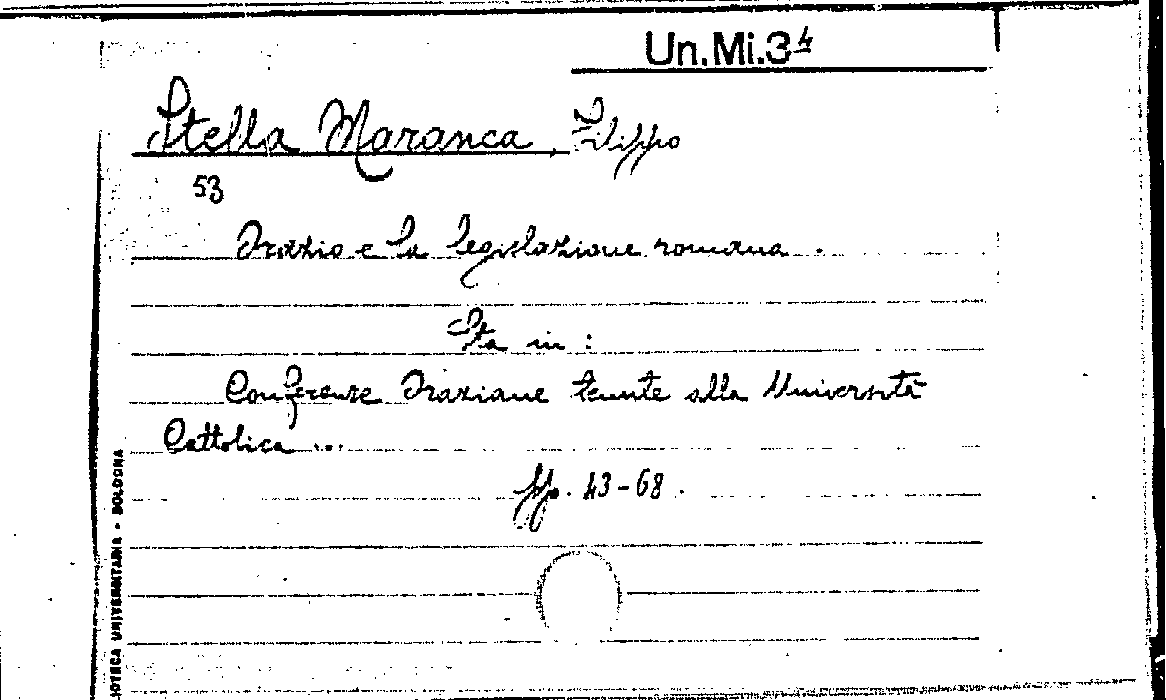 Un.Mi.34
Stella Maranca, Filippo
53
Orazio e la legislazione romana.
Sta in:
Conferenze Oraziane tenute alla Università
Cattolica ...
pp. 43-68.
IOTECA UNIVERSITARIA - BOLOGNA